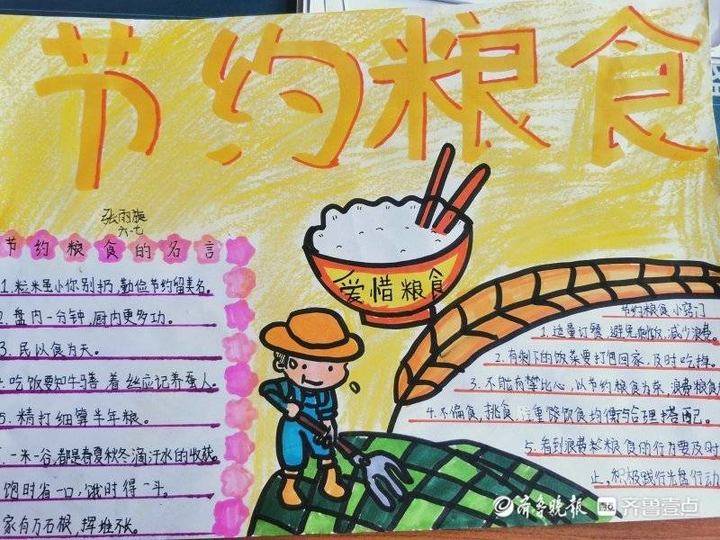 节约粮食
六·七
爱惜粮食
节约粮食的名言
1.粒米虽小你别扔,勤俭节约留美名。
2.盘内一分钟,厨内更多功。
3.民以食为天。
吃饭要知牛马善,着丝应记养蚕人。
5.精打细算半年粮。
一米一谷,都是春夏秋冬滴汗水的收获。
饱时省一口,饿时得一斗。
家有万石粮,挥 不长。
节约粮食小窍门
1.适量订餐,避免剩饭,减少浪费。
2.有剩下的饭菜要打包回家,及时吃掉。
3.不能有攀比心,以节约粮食为荣,浪费粮食
4.不偏食,挑食,注重 饮食均衡与合理搭配。
5.看到浪费 粮食的行为要及时
止,积极践行光盘行动
齐鲁晚报 齐鲁壹点